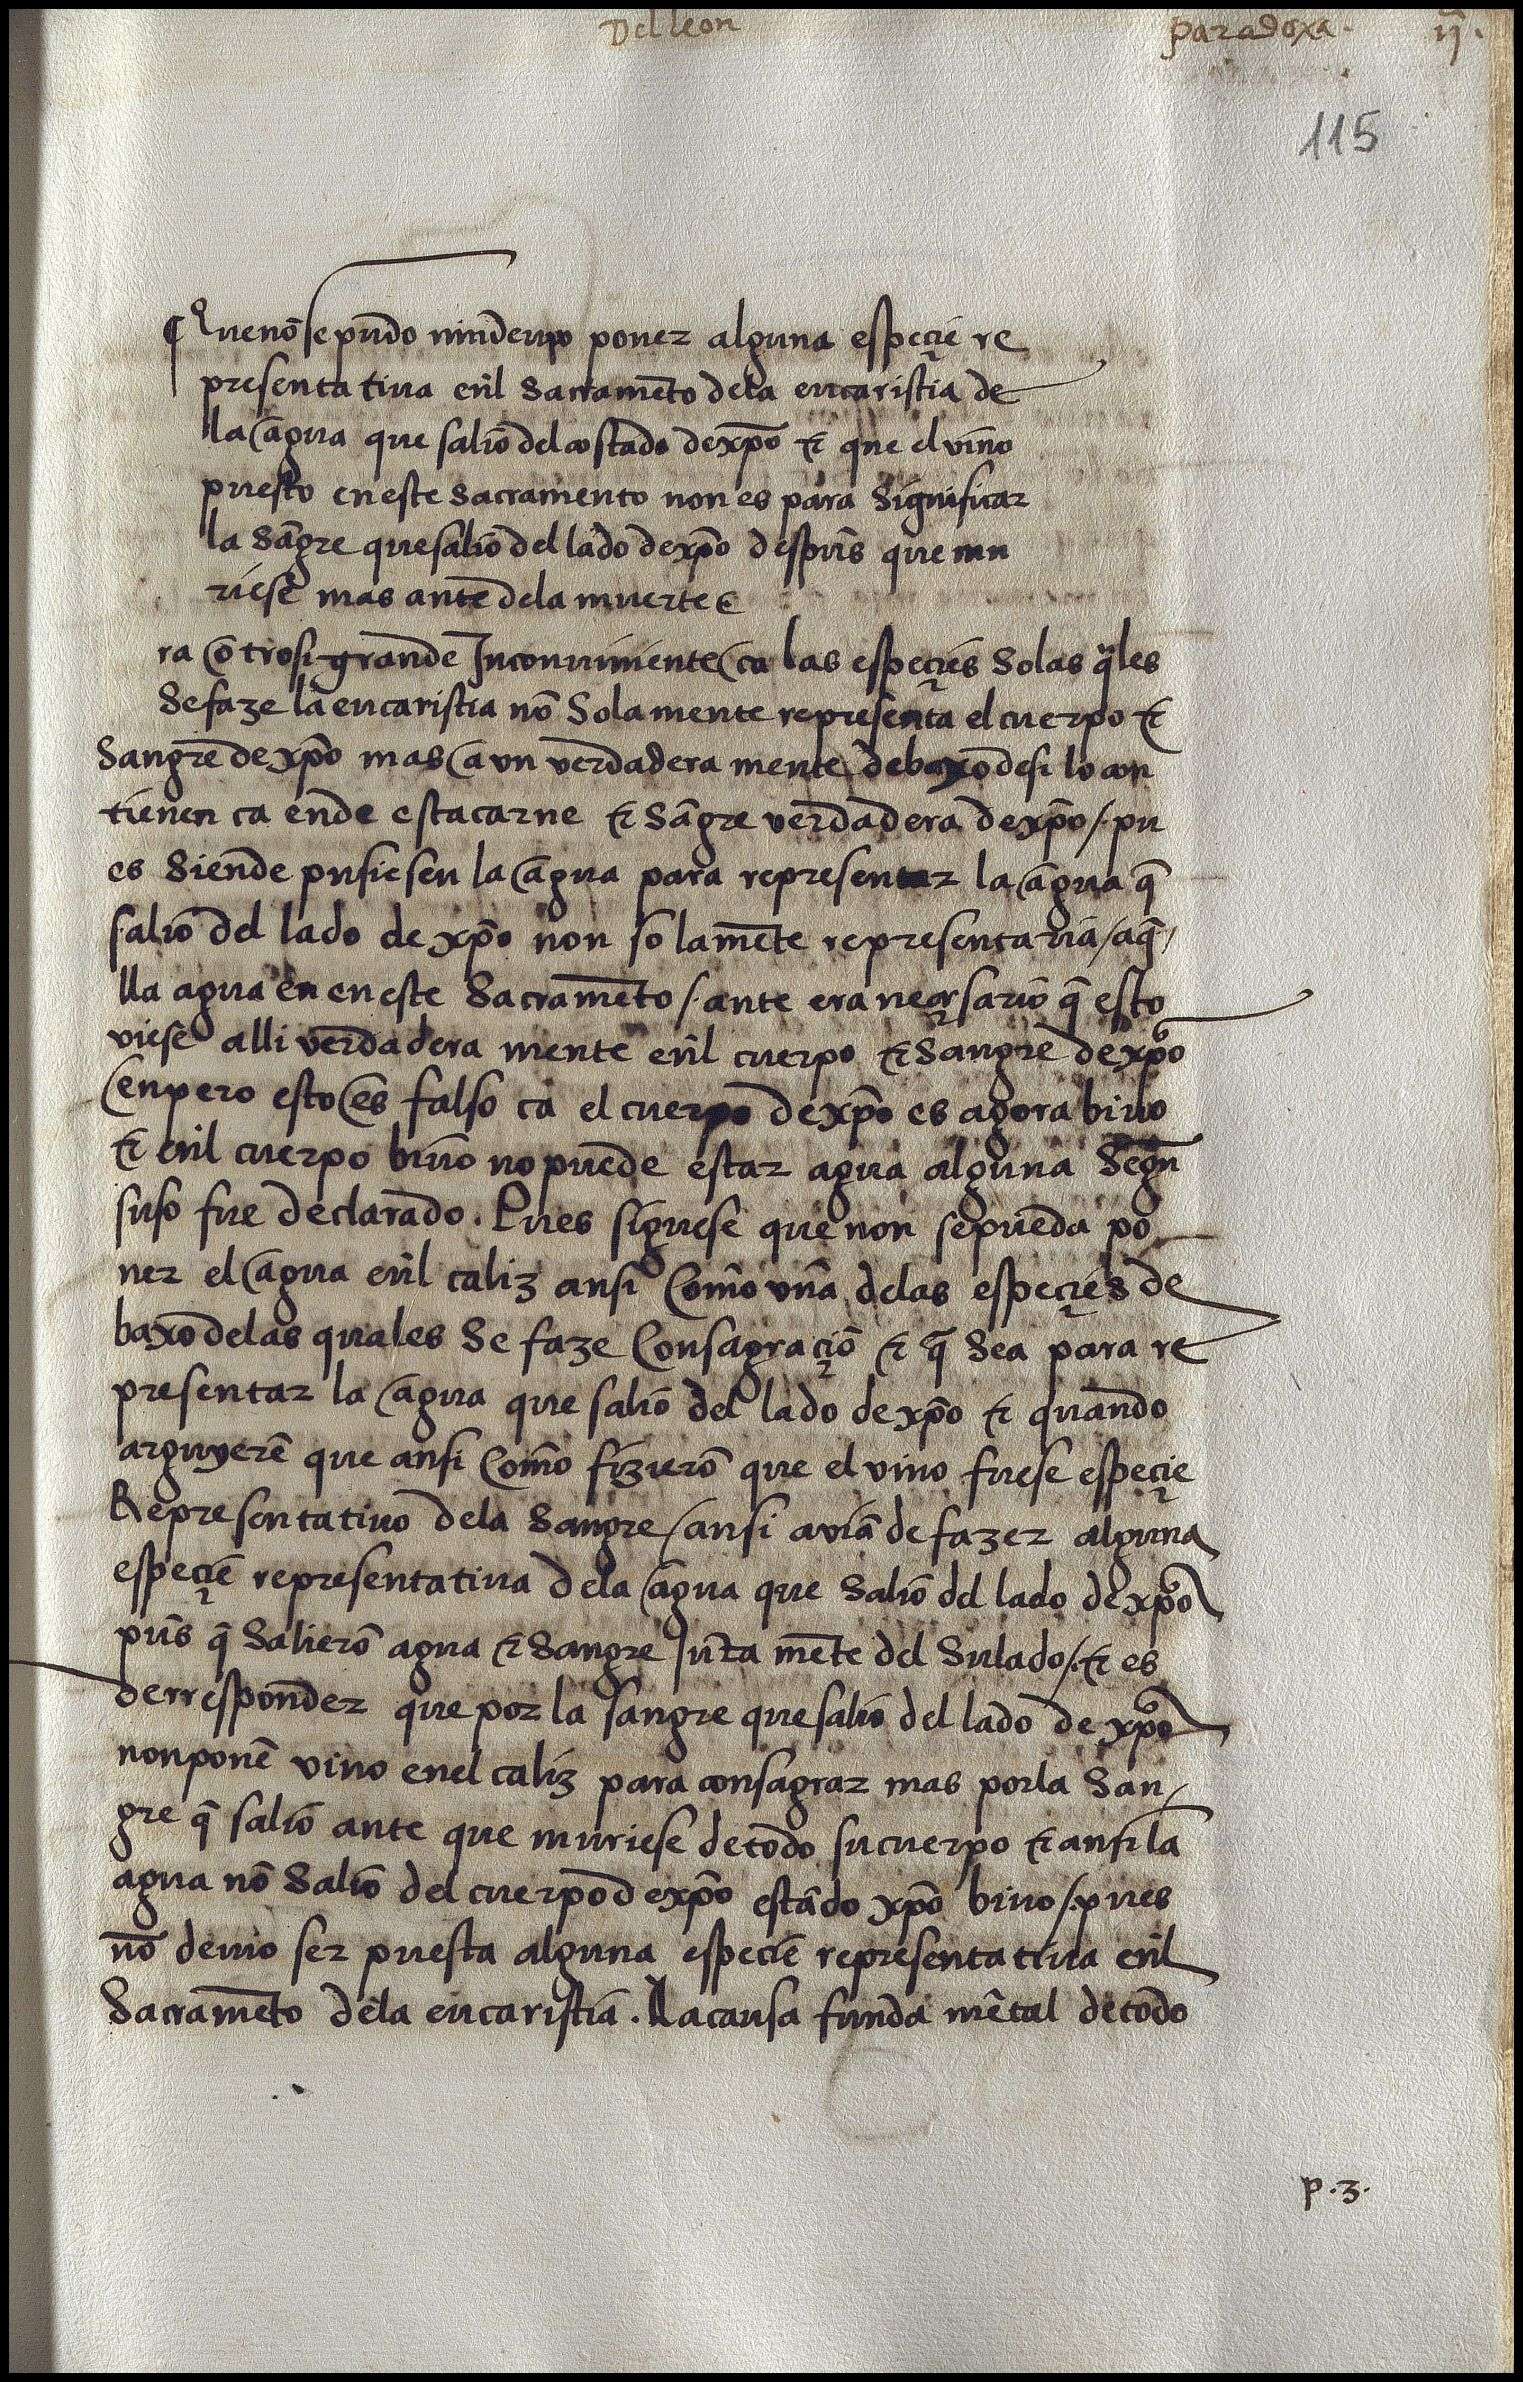 Del leon paradoxa. ij.
115
¶ Que nõ se pudo nin deuio poner alguna espeçie re
presentatiua enl sacramẽto dela eucaristia de
la agua que salio del costado de xp̃o & que el vino
puesto en este sacramento non es para significar
la sãgre que salio del lado de xp̃o despues que mu
riese mas ante dela muerte
ra otrosi grande Inconuiniente ca las espeçies solas q̃les
se faze la eucaristia nõ sola mente representa el cuerpo &
sangre de xp̃o mas avn verdadera mente debaxo de si lo con
tienen ca ende esta carne & sãgre verdadera de xp̃o /. pu
es si ende pusiesen la agua para representar la agua q̃
salio del lado de xp̃o non sola mẽte representaria / aq̃
lla agua en este sacramẽto /. ante era neçesario q̃ esto
viese alli verdadera mente enl cuerpo & sangre de xp̃o
enpero esto es falso ca el cuerpo de xp̃o es agora biuo
& enl cuerpo biuo no puede estar agua alguna segũ
suso fue declarado. Pues siguese que non se pueda po
ner el agua enl caliz ansi como vna delas espeçies de
baxo delas quales se faze consagraçiõ & q̃ sea para re
presentar la agua que salio del lado de xp̃o & quando
arguyerẽ que ansi como fizierõ que el vino fuese espeçie
Representatiuo dela sangre / ansi avia de fazer alguna
espeçie representatiua dela agua que salio del lado de xp̃o
pues q̃ salierõ agua & sangre Junta mẽte del su lado /. & es
de rresponder que por la sangre que salio del lado de xp̃o
non ponẽ vino enel caliz para consagrar mas por la san
gre q̃ salio ante que muriese de todo su cuerpo & ansi la
agua nõ salio del cuerpo de xp̃o estãdo xp̃o biuo /. pues
nõ deuio ser puesta alguna espeçie representatiua enl
sacramẽto dela eucaristia. La causa funda mẽtal de todo
p.3.